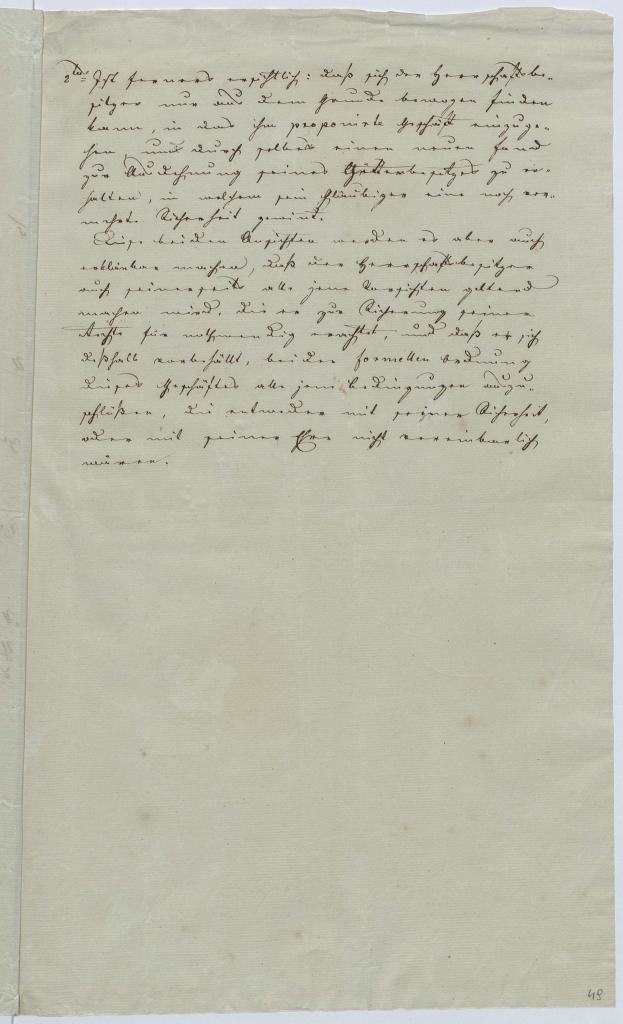 2tens Ist ferners ersichtlich: daß sich der Herrschaftsbe-
sitzer nur aus dem Grunde bewogen finden
kann, in das ihm proponirte Geschäft einzuge-
hen, um durch selbes einen neuen Fond
zur Ausdehnung seines Güterbesitzes zu er-
halten, in welchem sein Gläubiger eine noch ver-
mehrte Sicherheit gewint.
Diese beiden Ansichten werden es aber auch
erklärbar machen, daß der Herrschaftsbesitzer
auch seinerseits alle jene Vorsichten geltend
machen wird, die er zur Sicherung seiner
Rechte für nothwendig erachtet, und daß er sich
deßhalb vorbehällt, bei der formellen Ordnung
dieses Geschäftes alle jene Bedingungen auszu-
schlüßen, die entweder mit seiner Sicherheit,
oder mit seiner Ehre nicht vereinbarlich
wären.
49